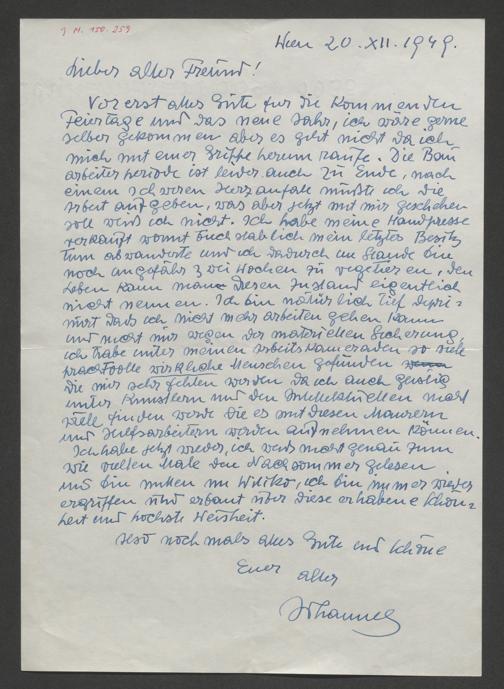 J. N. 150.259
Wien 20.XII.1949.
Lieber alter Freund!
Vorerst alles Gute für die kommenden
Feiertage und das neue Jahr, ich wäre gerne
selber gekommen aber es geht nicht da ich
mich mit einer Grippe herum raufe. Die Bau
arbeiterperiode ist leider auch zu Ende, nach
einem schweren Herzanfall mußte ich die
Arbeit aufgeben, was aber jetzt mit mir geschehen
soll weiß ich nicht. Ich habe meine Handpresse
verkauft womit buchstablich mein letztes Besitz
tum abwanderte und ich dadurch im Stande bin
noch ungefähr 3 Wochen zu vegetieren, den
Leben kann man diesen Zustand eigentlich
nicht nennen. Ich bin natürlich tief depri=
miert das ich nicht mehr arbeiten gehen kann
und nicht nur wegen der materiellen Sicherung,
ich habe unter meinen Arbeitskameraden so viele
prachtvolle wirkliche Menschen gefunden
die mir sehr fehlen werden da ich auch geistig
unter Künstlern und den Intellektuellen nicht
viele finden werde die es mit diesen Maurern
und Hilfsarbeitern werden aufnehmen können.
Ich habe jetzt wieder, ich weiß nicht genau zum
wie vielten Male den Nachsommer gelesen
und bin mitten im Witiko, ich bin immer wieder
ergriffen und erbaut über diese erhabene Schön-
heit und höchste Weisheit.
Also nochmals alles Gute und Schöne
Euer
alter
Johannes